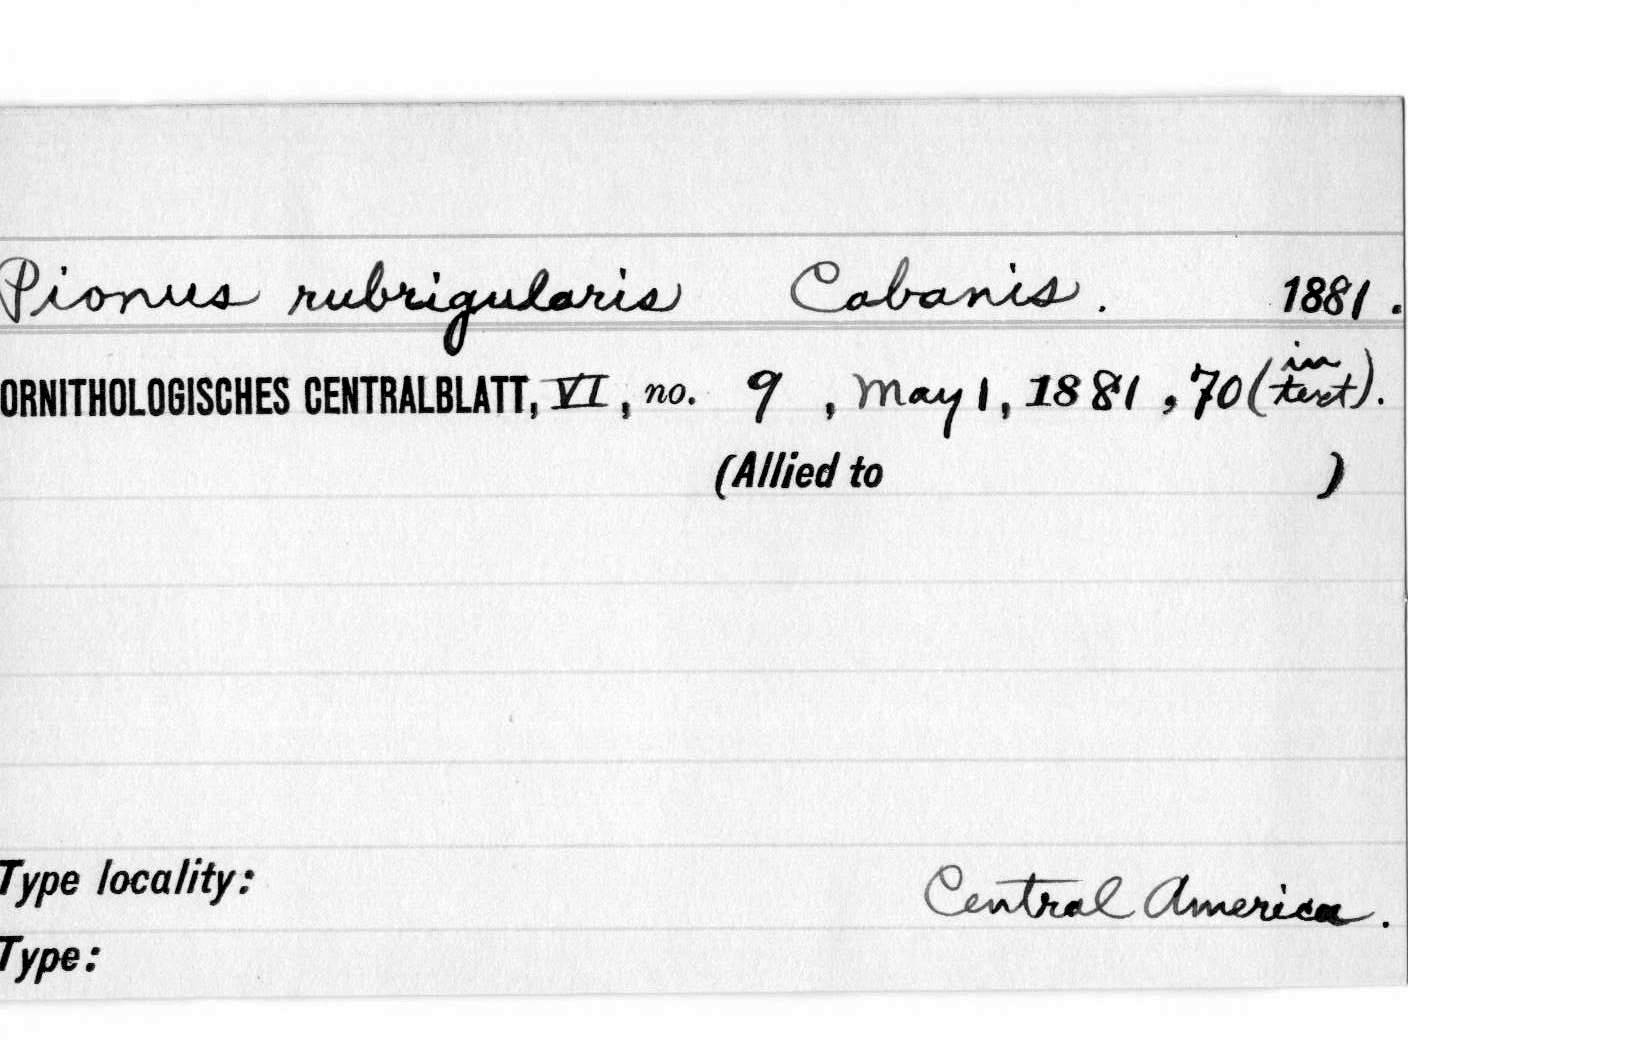 Pionus rubrigularis Cabanis. 1881.
ORNITHOLOGISCHES CENTRALBLATT, VI, no. 9, May 1, 1881, 70 (in text).
(Allied to )
Type locality: Central America.
Type: